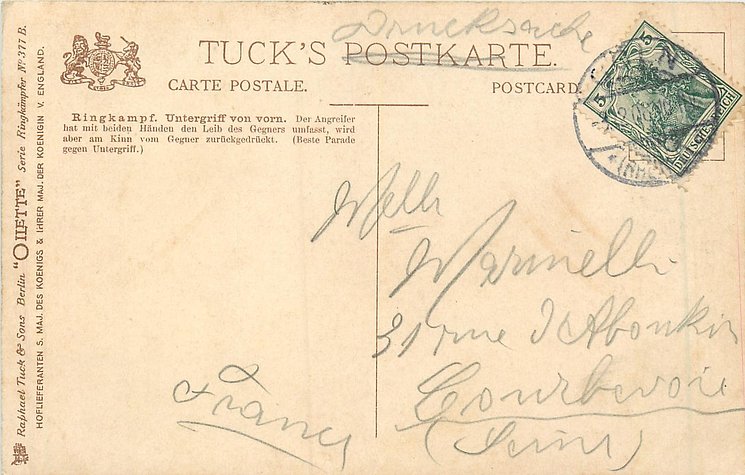 Drucksache
TUCK'S POSTKARTE.
CARTE POSTALE.
POSTCARD
Ringkampf. Untergriff von vorn. Der Angreifer
hat mit beiden Händen den Leib des Gegners umfasst, wird
aber am Kinn vom Gegner zurückgedrückt. (Beste Parade
gegen Untergriff.)
Raphael Tuck & Sons Berlin "OILETTE" Serie Ringkämpfer No 377 B.
HOFLIEFERANTEN S. MAJ. DES KOENIGS & IHRER MAJ. DER KOENIGIN V. ENGLAND.
5
5
DEUTSCHES REICH
(RHEIN)
Melle
Marinelli
31 rue d'Aboukir
Courbevoie
(Seine)
France